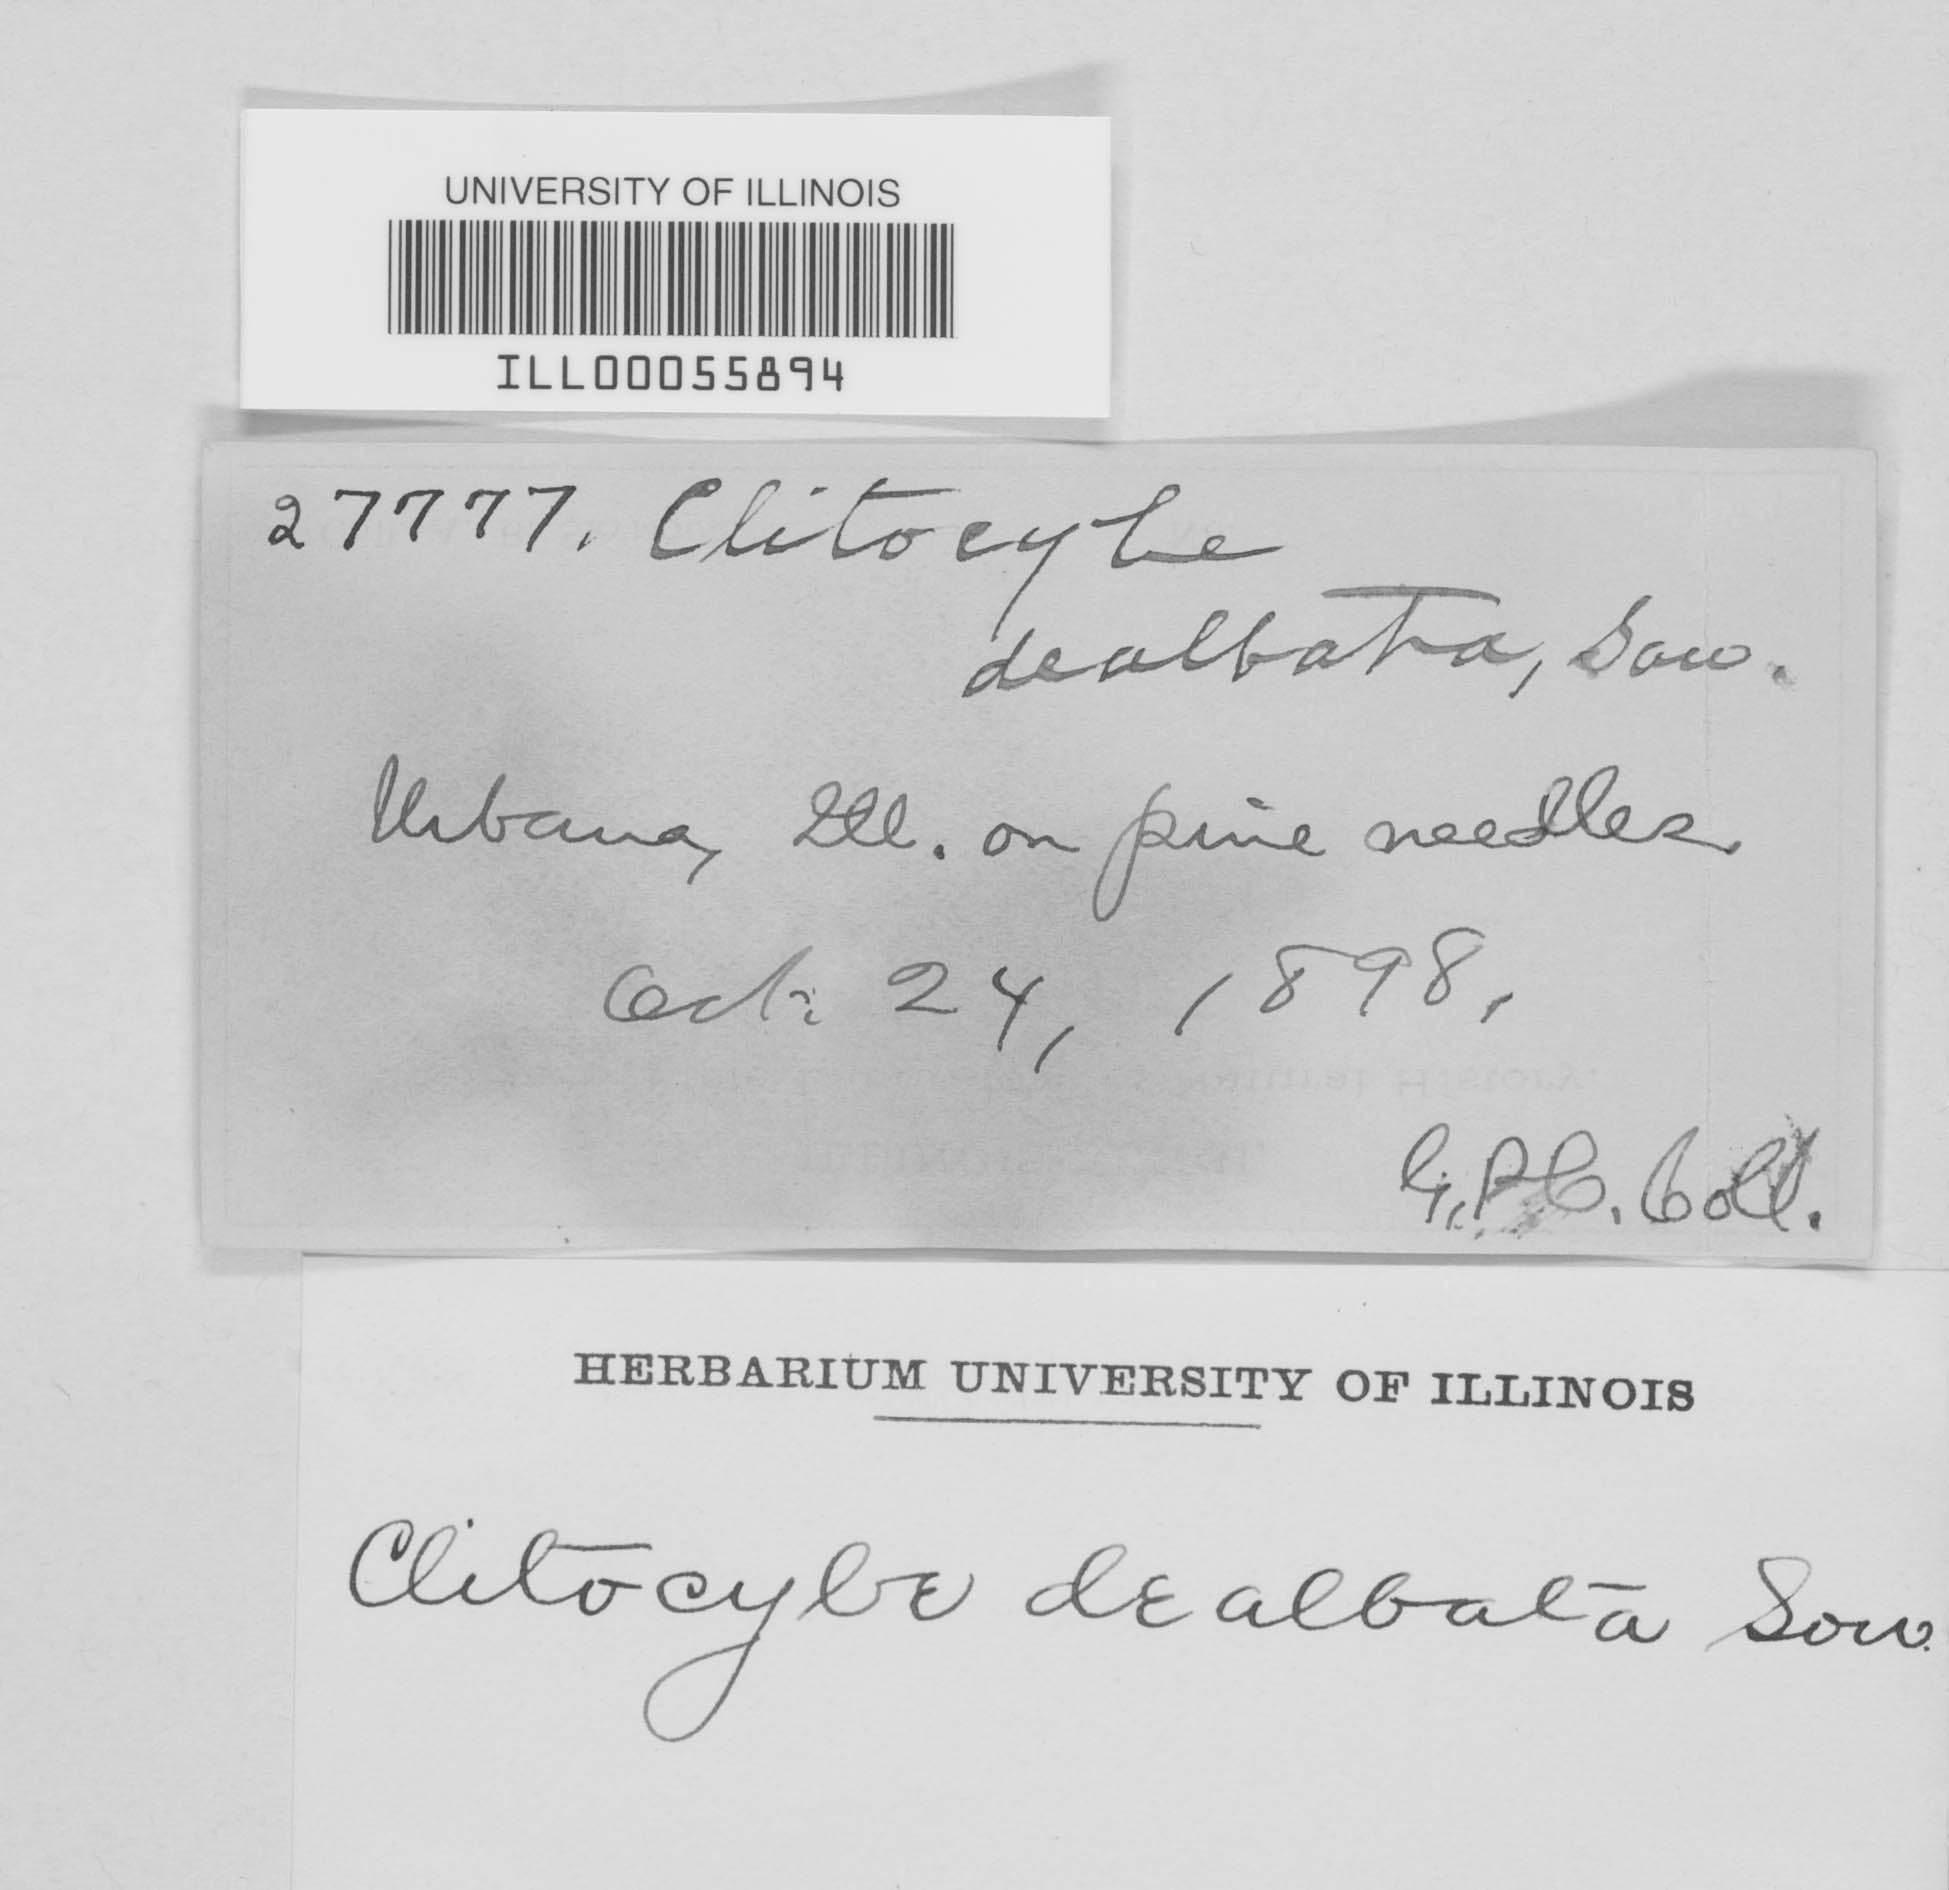 UNIVERSITY OF ILLINOIS
ILL00055894
27777. Clitocybe
dealbata, Sow.
Urbana, Ill. on pine needles.
Oct. 24, 1898.
G.P.C. Coll.
HERBARIUM UNIVERSITY OF ILLINOIS
Clitocybe dealbata Sow.